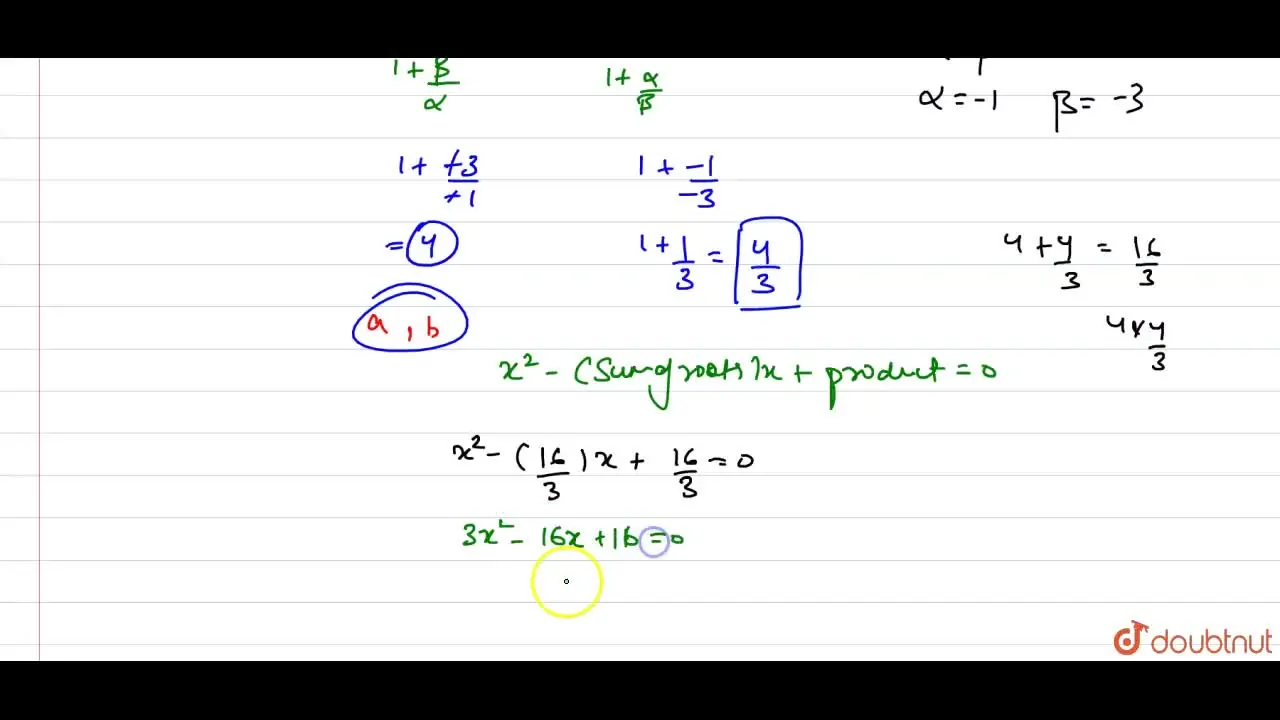 1 + β/α 1 + α/β
α = -1 β = -3
1 + -3/-1 1 + -1/-3
= 4 1 + 1/3 = 4/3 4 + 4/3 = 16/3
a , b 4x4/3
x² - (Sum of roots)x + product = 0
x² - (16/3)x + 16/3 = 0
3x² - 16x + 16 = 0
doubtnut